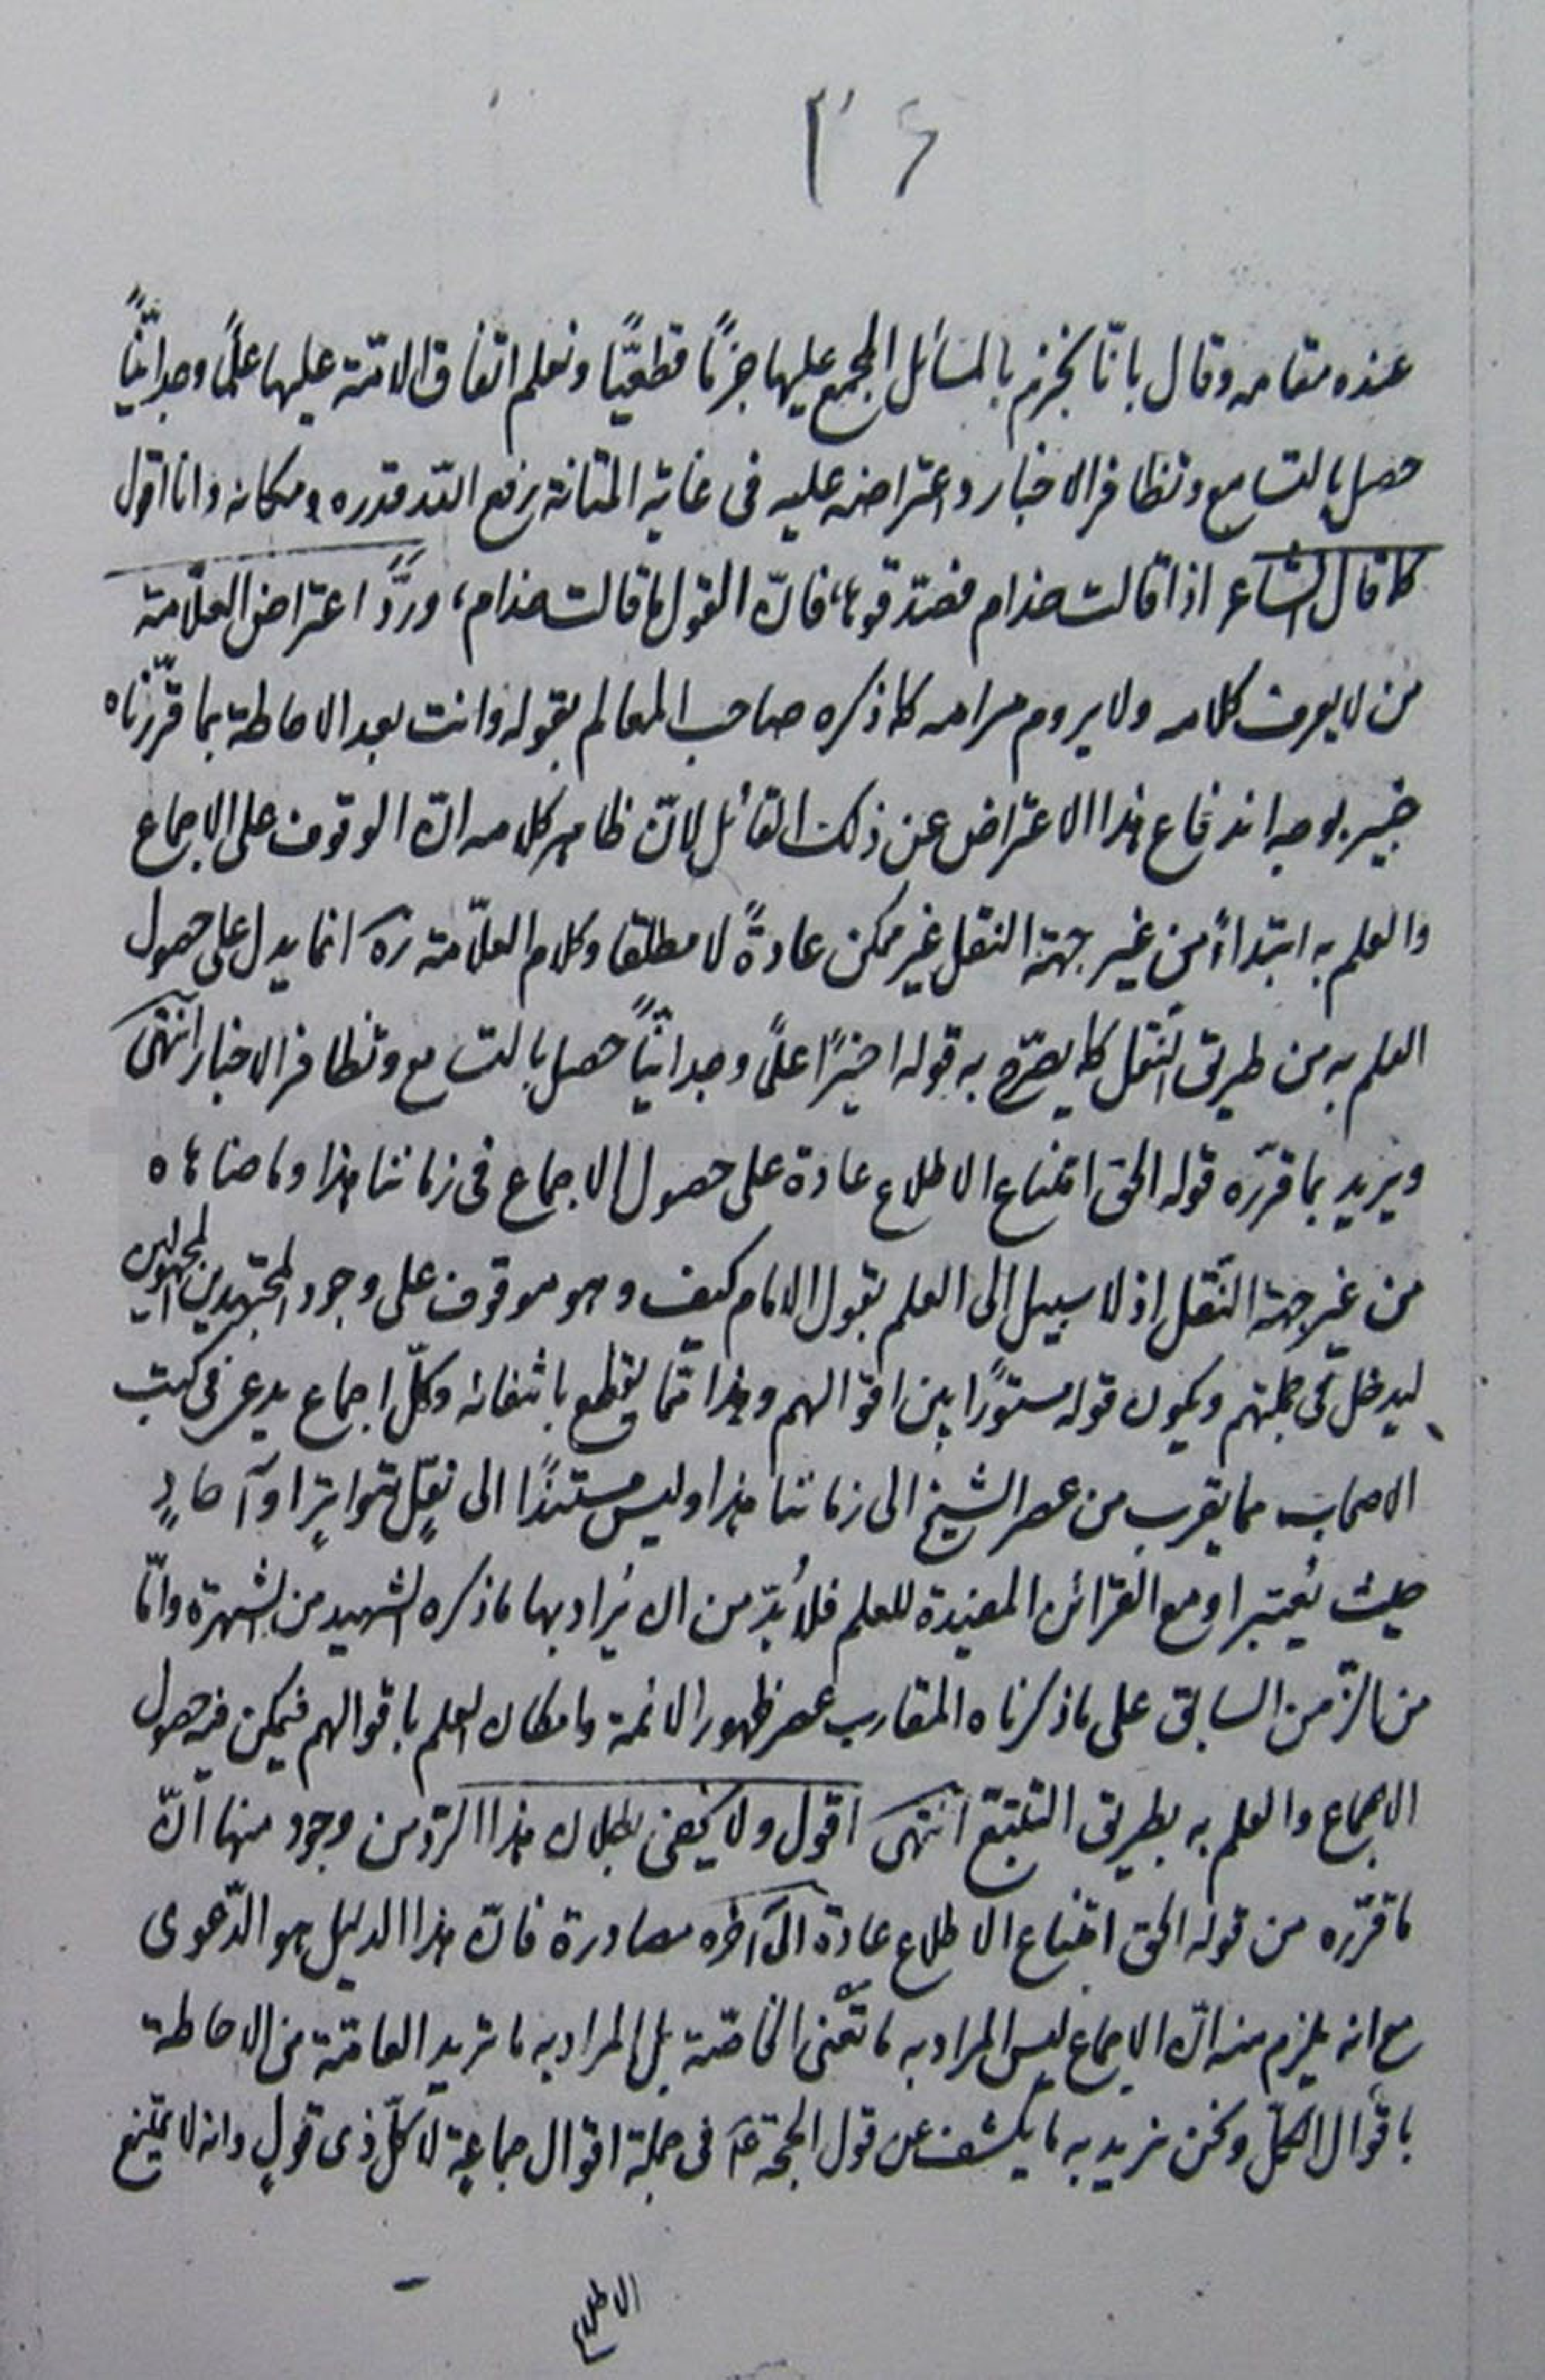 ۲۶
عنده مقامه وقال بانّا نجزم بالمسائل المجمع عليها جزمًا قطعيًّا ونعلم اتفاق الامّة عليها علمًا وجدانيًّا
حصل بالتسامع وتظافر الاخبار واعتراضه عليه فى غاية المتانة يرفع اللّه قدره ومكانه وانا اقول
كما قال الشاعر اذا قالت حذام فصدّقوها، فانّ القول ما قالت حذام، وردَّ اعتراض العلّامة
من لا يعرف كلامه ولا يروم مرامه كما ذكره صاحب المعالم بقوله وانت بعد الاحاطة بما قرّرناه
خبير بوجه اندفاع هذا الاعتراض عن ذلك القائل لانّ ظاهر كلامه انّ الوقوف على الاجماع
والعلم به ابتداءً من غير جهة النقل غير ممكن عادةً لا مطلقا وكلام العلّامة ره انما يدل على حصول
العلم به من طريق النّقل كما يصرّح به قوله اخيرًا علمًا وجدانيًّا حصل بالتسامع وتظافر الاخبار انتهى
ويريد بما قرّره قوله الحق امتناع الاطلاع عادة على حصول الاجماع فى زماننا هذا وما ضاهاه
من غير جهة النّقل اذ لا سبيل الى العلم بقول الامام كيف وهو موقوف على وجود المجتهدين المجهولين
ليدخل فى جملتهم ويكون قوله مستورًا بين اقوالهم وهذا ممّا يقطع بانتفائه وكلّ اجماع يدعى فى كتب
الاصحاب مما يقرب من عصر الشيخ الى زماننا هذا وليس مستندًا الى نقلٍ متواترٍ او آحادٍ
حيث يُعتبر او مع القرائن المفيدة للعلم فلا بُدّ من ان يُراد بها ما ذكره الشهيد من الشهرة وامّا
من الزّمن السابق على ما ذكرناه المقارب عصر ظهور الائمة وامكان العلم باقوالهم فيمكن فيه حصول
الاجماع والعلم به بطريق التتبّع انتهى اقول ولا يخفى بطلان هذا الردّ من وجود منها انّ
ما قرّره من قوله الحق امتناع الاطلاع عادة الى آخره مصادرة فانّ هذا الدليل هو الدّعوى
مع انه يلزم منه انّ الاجماع ليس المراد به ما تعنى الخاصّة بل المراد به ما تريد العامّة من الاحاطة
باقوال الكلّ ونحن نريد به ما يكشف عن قول الحجّة عم فى جملة اقوال جماعةٍ لا كلّ ذى قولٍ وانه لا يمتنع
الاطلاع